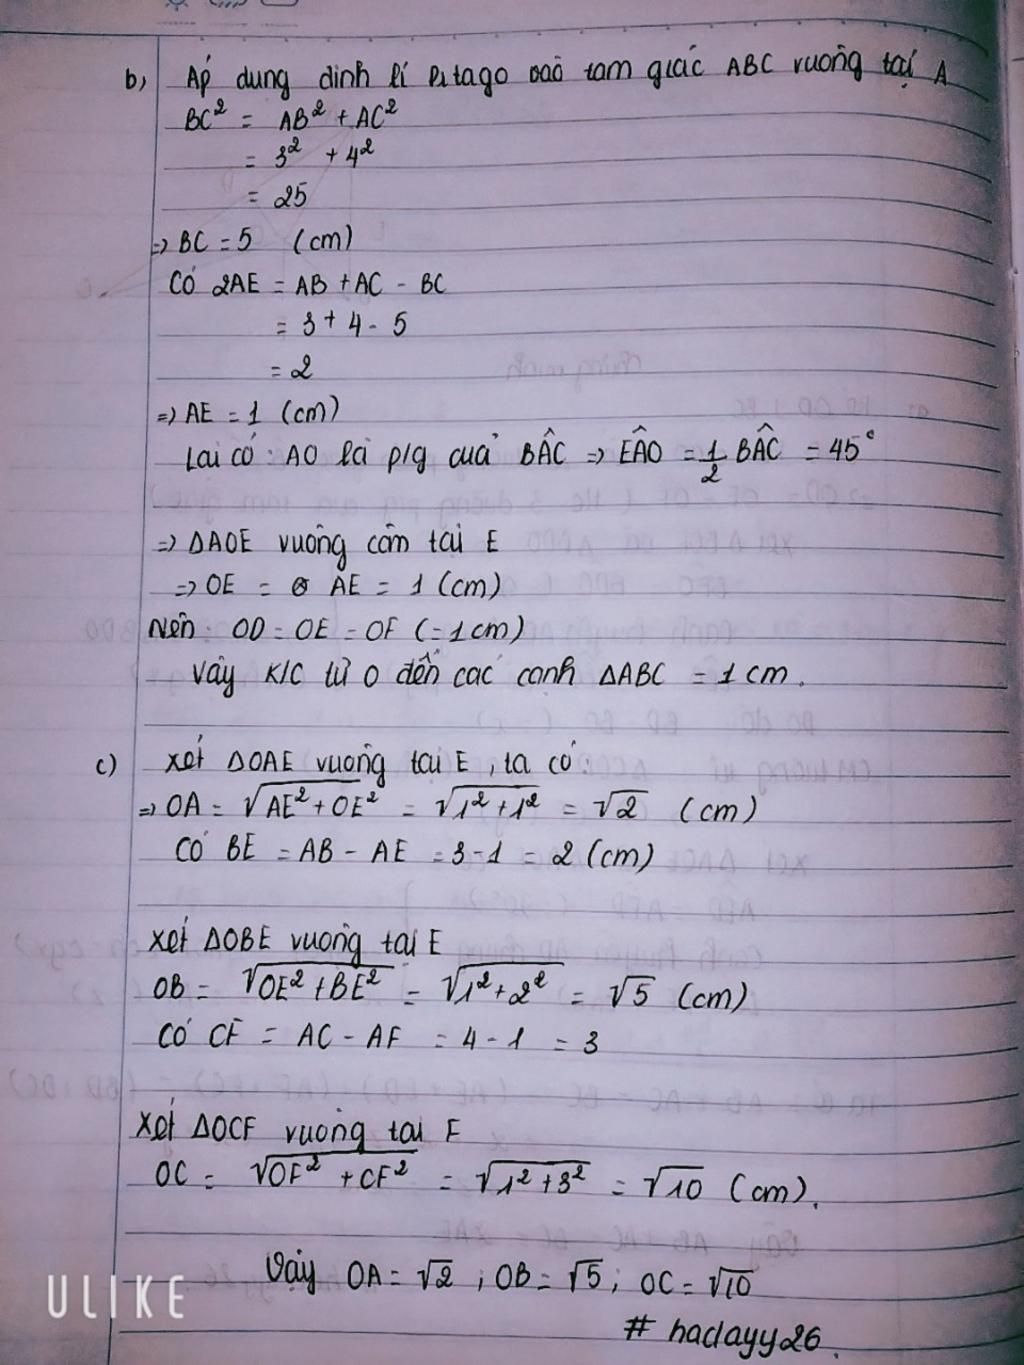 b) Áp dụng định lí Pitago vào tam giác ABC vuông tại A
BC² = AB² + AC²
= 3² + 4²
= 25
=> BC = 5 (cm)
Có 2AE = AB + AC - BC
= 3 + 4 - 5
= 2
=> AE = 1 (cm)
Lại có : AO là p/g của BÂC => EÂO = 1/2 BÂC = 45°
=> ΔAOE vuông cân tại E
=> OE = AE = 1 (cm)
Nên : OD = OE = OF (= 1 cm)
Vậy K/C từ O đến các cạnh ΔABC = 1 cm.
c) Xét ΔOAE vuông tại E, ta có :
=> OA = √AE² + OE² = √1² + 1² = √2 (cm)
Có BE = AB - AE = 3 - 1 = 2 (cm)
Xét ΔOBE vuông tại E
OB = √OE² + BE² = √1² + 2² = √5 (cm)
Có CF = AC - AF = 4 - 1 = 3
Xét ΔOCF vuông tại F
OC = √OF² + CF² = √1² + 3² = √10 (cm).
Vậy OA = √2 ; OB = √5 ; OC = √10
# haclayy26.
ULIKE